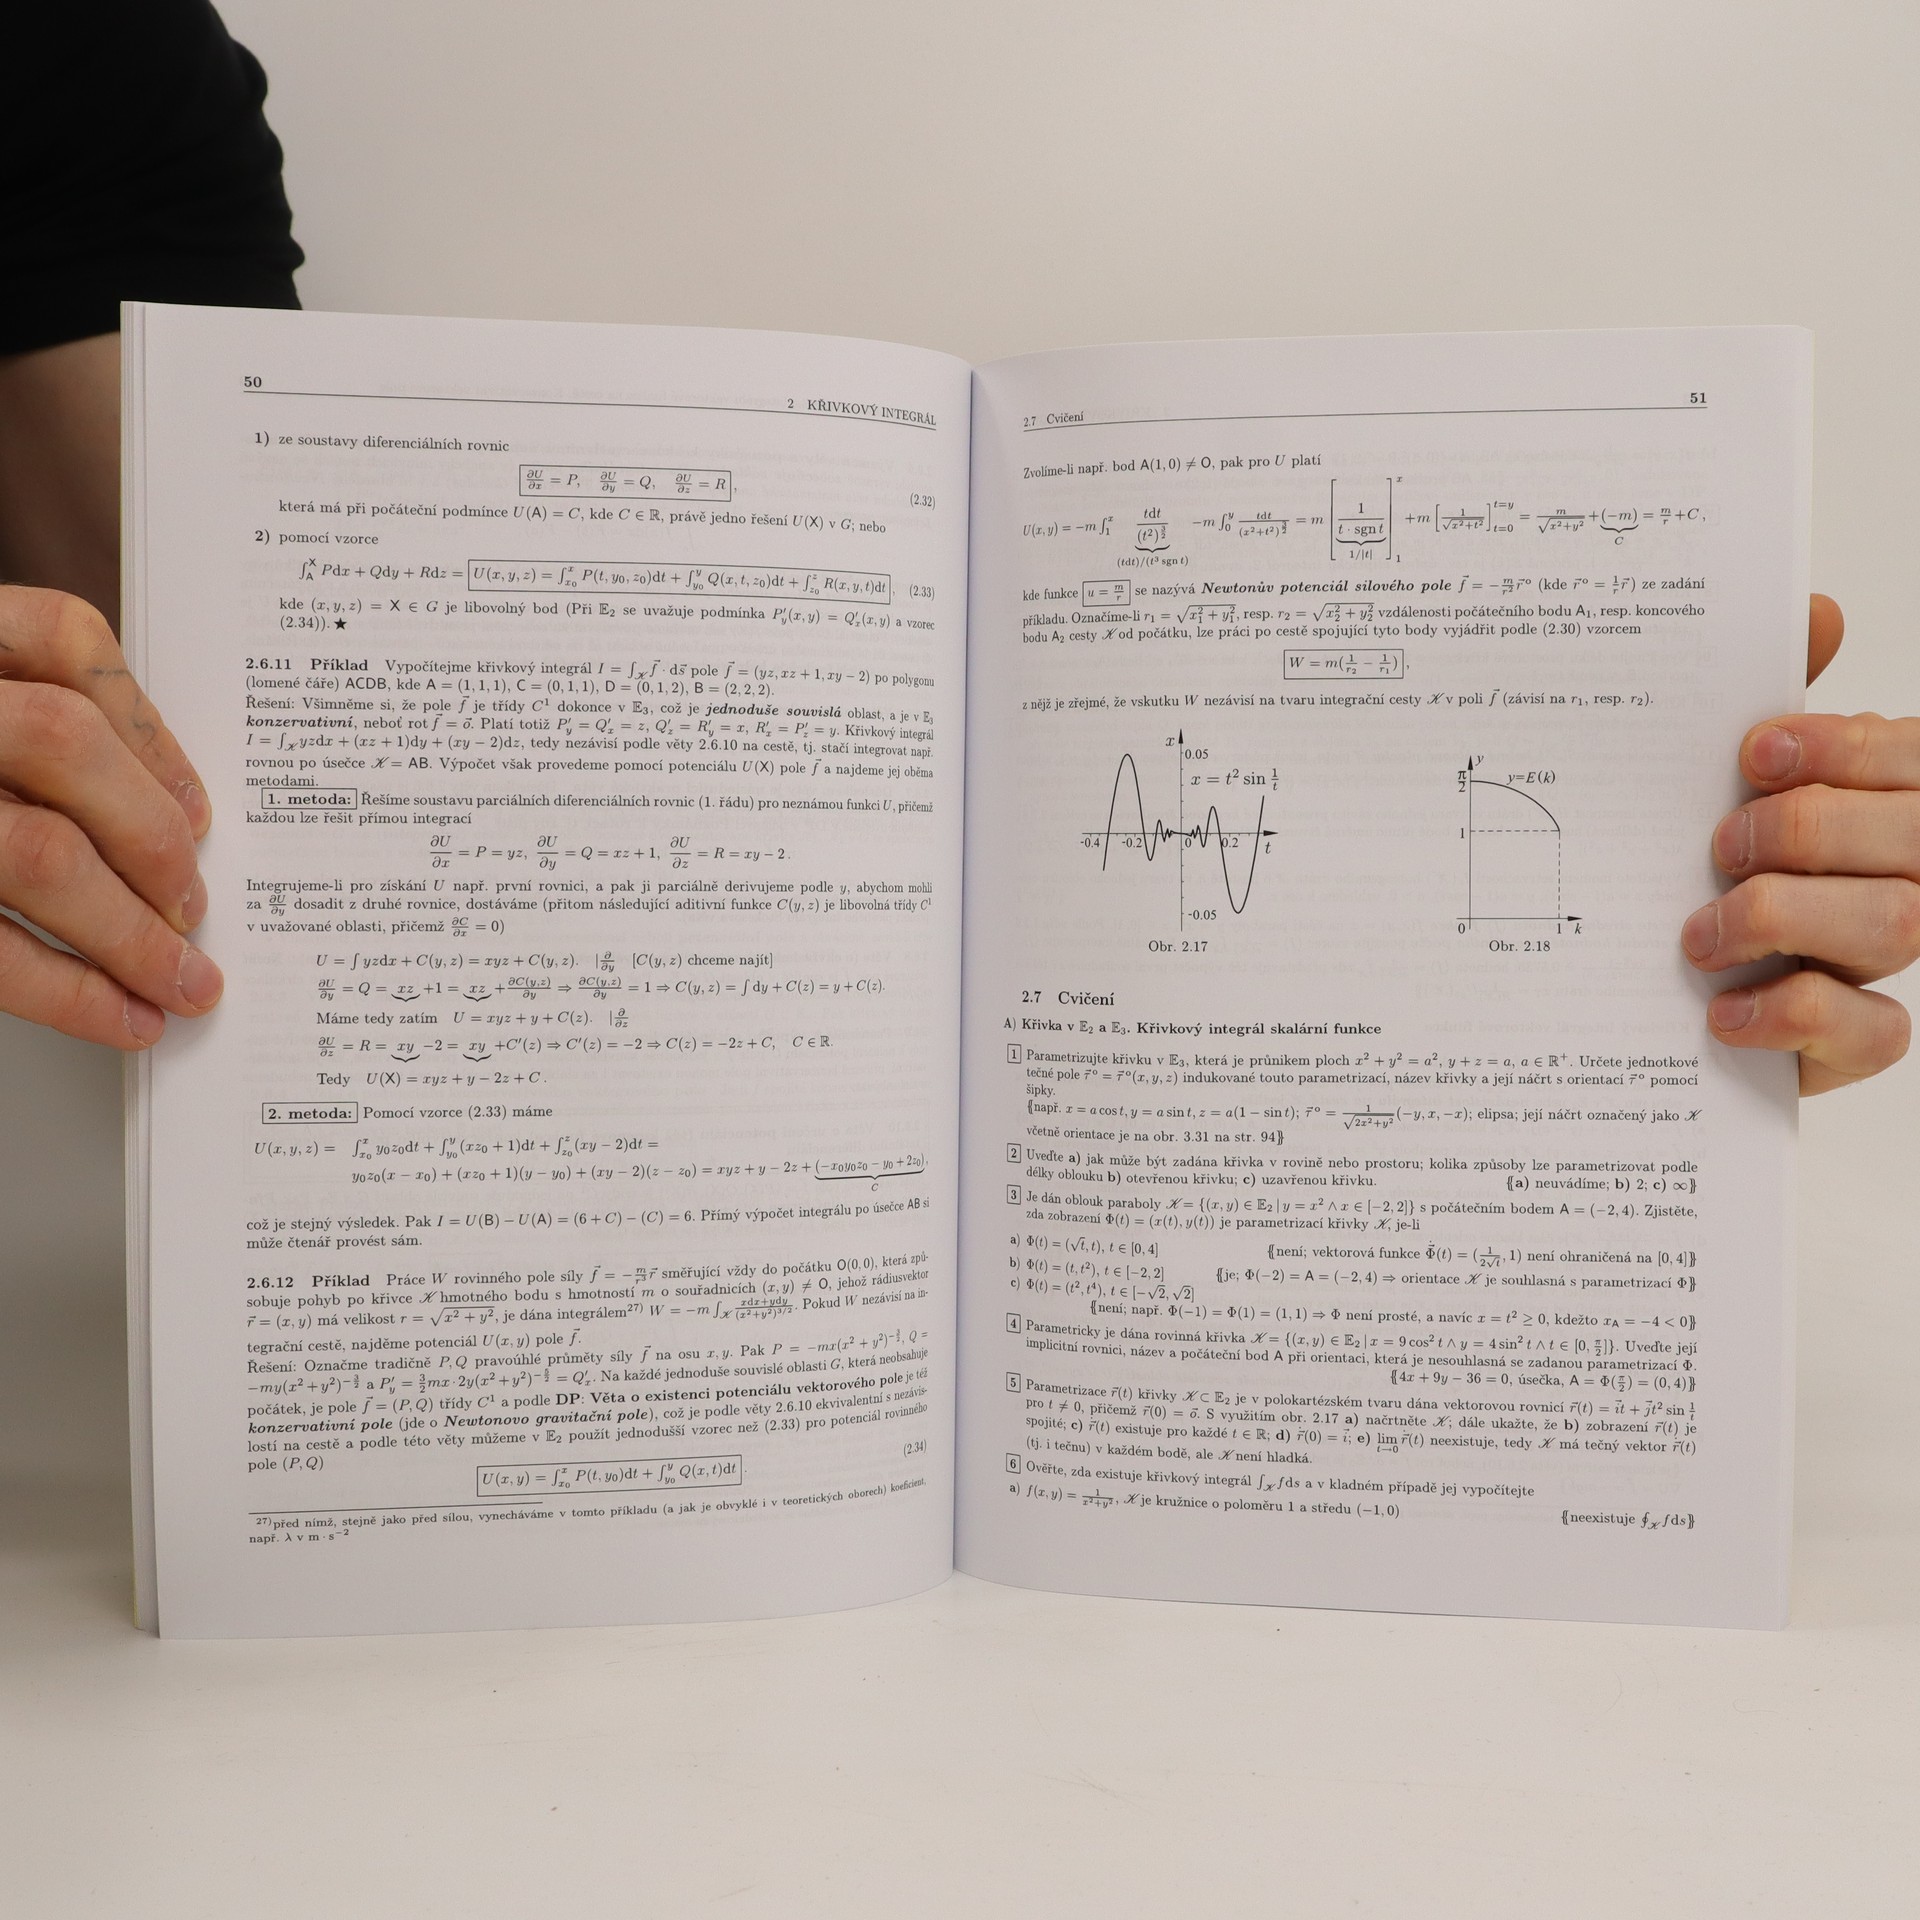 50
2 KŘIVKOVÝ INTEGRÁL
1) ze soustavy diferenciálních rovnic
∂U/∂x = P, ∂U/∂y = Q, ∂U/∂z = R, (2.32)
která má při počáteční podmínce U(A) = C, kde C ∈ ℝ, právě jedno řešení U(X) v G; nebo
2) pomocí vzorce
∫_A^X Pdx + Qdy + Rdz = U(x, y, z) = ∫_{x₀}^x P(t, y₀, z₀)dt + ∫_{y₀}^y Q(x, t, z₀)dt + ∫_{z₀}^z R(x, y, t)dt, (2.33)
kde (x, y, z) = X ∈ G je libovolný bod (Při 𝔼₂ se uvažuje podmínka P′_y(x, y) = Q′_x(x, y) a vzorec
(2.34)). ★
2.6.11 Příklad Vypočítejme křivkový integrál I = ∫_𝒦 f⃗ · ds⃗ pole f⃗ = (yz, xz + 1, xy − 2) po polygonu
(lomené čáře) ACDB, kde A = (1, 1, 1), C = (0, 1, 1), D = (0, 1, 2), B = (2, 2, 2).
Řešení: Všimněme si, že pole f⃗ je třídy C¹ dokonce v 𝔼₃, což je jednoduše souvislá oblast, a je v 𝔼₃
konzervativní, neboť rot f⃗ = o⃗. Platí totiž P′_y = Q′_x = z, Q′_z = R′_y = x, R′_x = P′_z = y. Křivkový integrál
I = ∫_𝒦 yzdx + (xz + 1)dy + (xy − 2)dz, tedy nezávisí podle věty 2.6.10 na cestě, tj. stačí integrovat např.
rovnou po úsečce 𝒦 = AB. Výpočet však provedeme pomocí potenciálu U(X) pole f⃗ a najdeme jej oběma
metodami.
1. metoda: Řešíme soustavu parciálních diferenciálních rovnic (1. řádu) pro neznámou funkci U, přičemž
každou lze řešit přímou integrací
∂U/∂x = P = yz, ∂U/∂y = Q = xz + 1, ∂U/∂z = R = xy − 2.
Integrujeme-li pro získání U např. první rovnici, a pak ji parciálně derivujeme podle y, abychom mohli
za ∂U/∂y dosadit z druhé rovnice, dostáváme (přitom následující aditivní funkce C(y, z) je libovolná třídy C¹
v uvažované oblasti, přičemž ∂C/∂x = 0)
U = ∫ yzdx + C(y, z) = xyz + C(y, z). |∂/∂y [C(y, z) chceme najít]
∂U/∂y = Q = xz +1 = xz + ∂C(y,z)/∂y ⇒ ∂C(y,z)/∂y = 1 ⇒ C(y, z) = ∫ dy + C(z) = y + C(z).
Máme tedy zatím U = xyz + y + C(z). |∂/∂z
∂U/∂z = R = xy −2 = xy +C′(z) ⇒ C′(z) = −2 ⇒ C(z) = −2z + C, C ∈ ℝ.
Tedy U(X) = xyz + y − 2z + C.
2. metoda: Pomocí vzorce (2.33) máme
U(x, y, z) = ∫_{x₀}^x y₀z₀dt + ∫_{y₀}^y (xz₀ + 1)dt + ∫_{z₀}^z (xy − 2)dt =
y₀z₀(x − x₀) + (xz₀ + 1)(y − y₀) + (xy − 2)(z − z₀) = xyz + y − 2z + (−x₀y₀z₀ − y₀ + 2z₀),
C
což je stejný výsledek. Pak I = U(B) − U(A) = (6 + C) − (C) = 6. Přímý výpočet integrálu po úsečce AB si
může čtenář provést sám.
2.6.12 Příklad Práce W rovinného pole síly f⃗ = −m/r³ r⃗ směřující vždy do počátku O(0, 0), která způ-
sobuje pohyb po křivce 𝒦 hmotného bodu s hmotností m o souřadnicích (x, y) ≠ O, jehož rádiusvektor
r⃗ = (x, y) má velikost r = √(x² + y²), je dána integrálem²⁷⁾ W = −m ∫_𝒦 (xdx+ydy)/(x²+y²)^{3/2}. Pokud W nezávisí na in-
tegrační cestě, najděme potenciál U(x, y) pole f⃗.
Řešení: Označme tradičně P, Q pravoúhlé průměty síly f⃗ na osu x, y. Pak P = −mx(x² + y²)^{−3/2}, Q =
−my(x² + y²)^{−3/2} a P′_y = 3/2 mx · 2y(x² + y²)^{−5/2} = Q′_x. Na každé jednoduše souvislé oblasti G, která neobsahuje
počátek, je pole f⃗ = (P, Q) třídy C¹ a podle DP: Věta o existenci potenciálu vektorového pole je též
konzervativní pole (jde o Newtonovo gravitační pole), což je podle věty 2.6.10 ekvivalentní s nezávis-
lostí na cestě a podle této věty můžeme v 𝔼₂ použít jednodušší vzorec než (2.33) pro potenciál rovinného
pole (P, Q)
U(x, y) = ∫_{x₀}^x P(t, y₀)dt + ∫_{y₀}^y Q(x, t)dt. (2.34)
²⁷⁾před nímž, stejně jako před sílou, vynecháváme v tomto příkladu (a jak je obvyklé i v teoretických oborech) koeficient,
např. λ v m · s⁻²
2.7 Cvičení
51
Zvolíme-li např. bod A(1, 0) ≠ O, pak pro U platí
U(x, y) = −m ∫_1^x tdt/(t²)^{3/2} −m ∫_0^y tdt/(x²+t²)^{3/2} = m [1/(t · sgn t)]_1^x +m [1/√(x²+t²)]_{t=0}^{t=y} = m/√(x²+y²) +(−m) = m/r +C,
(tdt)/(t³ sgn t) 1/|t| C
kde funkce u = m/r se nazývá Newtonův potenciál silového pole f⃗ = −m/r² r⃗° (kde r⃗° = 1/r r⃗) ze zadání
příkladu. Označíme-li r₁ = √(x₁² + y₁²), resp. r₂ = √(x₂² + y₂²) vzdálenosti počátečního bodu A₁, resp. koncového
bodu A₂ cesty 𝒦 od počátku, lze práci po cestě spojující tyto body vyjádřit podle (2.30) vzorcem
W = m(1/r₂ − 1/r₁),
z nějž je zřejmé, že vskutku W nezávisí na tvaru integrační cesty 𝒦 v poli f⃗ (závisí na r₁, resp. r₂).
x
0.05
x = t² sin 1/t
-0.4 -0.2 0 0.2 t
-0.05
Obr. 2.17
y
π/2
y=E(k)
1
0 1 k
Obr. 2.18
2.7 Cvičení
A) Křivka v 𝔼₂ a 𝔼₃. Křivkový integrál skalární funkce
1 Parametrizujte křivku v 𝔼₃, která je průnikem ploch x² + y² = a², y + z = a, a ∈ ℝ⁺. Určete jednotkové
tečné pole τ⃗° = τ⃗°(x, y, z) indukované touto parametrizací, název křivky a její náčrt s orientací τ⃗° pomocí
šipky.
⦃např. x = a cos t, y = a sin t, z = a(1 − sin t); τ⃗° = 1/√(2x²+y²) (−y, x, −x); elipsa; její náčrt označený jako 𝒦
včetně orientace je na obr. 3.31 na str. 94⦄
2 Uveďte a) jak může být zadána křivka v rovině nebo prostoru; kolika způsoby lze parametrizovat podle
délky oblouku b) otevřenou křivku; c) uzavřenou křivku. ⦃a) neuvádíme; b) 2; c) ∞⦄
3 Je dán oblouk paraboly 𝒦 = {(x, y) ∈ 𝔼₂ | y = x² ∧ x ∈ [−2, 2]} s počátečním bodem A = (−2, 4). Zjistěte,
zda zobrazení Φ(t) = (x(t), y(t)) je parametrizací křivky 𝒦, je-li
a) Φ(t) = (√t, t), t ∈ [0, 4] ⦃není; vektorová funkce Φ̇⃗(t) = (1/(2√t), 1) není ohraničená na [0, 4]⦄
b) Φ(t) = (t, t²), t ∈ [−2, 2] ⦃je; Φ(−2) = A = (−2, 4) ⇒ orientace 𝒦 je souhlasná s parametrizací Φ⦄
c) Φ(t) = (t², t⁴), t ∈ [−√2, √2]
⦃není; např. Φ(−1) = Φ(1) = (1, 1) ⇒ Φ není prosté, a navíc x = t² ≥ 0, kdežto x_A = −4 < 0⦄
4 Parametricky je dána rovinná křivka 𝒦 = {(x, y) ∈ 𝔼₂ | x = 9 cos² t ∧ y = 4 sin² t ∧ t ∈ [0, π/2]}. Uveďte její
implicitní rovnici, název a počáteční bod A při orientaci, která je nesouhlasná se zadanou parametrizací Φ.
⦃4x + 9y − 36 = 0, úsečka, A = Φ(π/2) = (0, 4)⦄
5 Parametrizace r⃗(t) křivky 𝒦 ⊂ 𝔼₂ je v polokartézském tvaru dána vektorovou rovnicí r⃗(t) = i⃗t + j⃗t² sin 1/t
pro t ≠ 0, přičemž r⃗(0) = o⃗. S využitím obr. 2.17 a) načrtněte 𝒦; dále ukažte, že b) zobrazení r⃗(t) je
spojité; c) ṙ⃗(t) existuje pro každé t ∈ ℝ; d) ṙ⃗(0) = i⃗; e) lim_{t→0} ṙ⃗(t) neexistuje, tedy 𝒦 má tečný vektor ṙ⃗(t)
(tj. i tečnu) v každém bodě, ale 𝒦 není hladká.
6 Ověřte, zda existuje křivkový integrál ∫_𝒦 fds a v kladném případě jej vypočítejte
a) f(x, y) = 1/(x²+y²), 𝒦 je kružnice o poloměru 1 a středu (−1, 0) ⦃neexistuje ∮_𝒦 fds⦄